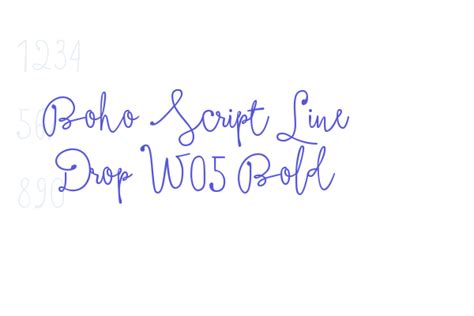 1234
56
890
Boho Script Line
Drop W05 Bold